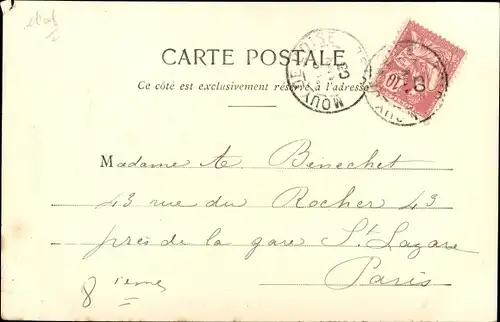 CARTE POSTALE
Ce côté est exclusivement réservé à l'adresse
MOUY OISE
10
Madame A. Bénechet
43 rue du Rocher 43
près de la gare St Lazare
Paris
8ième